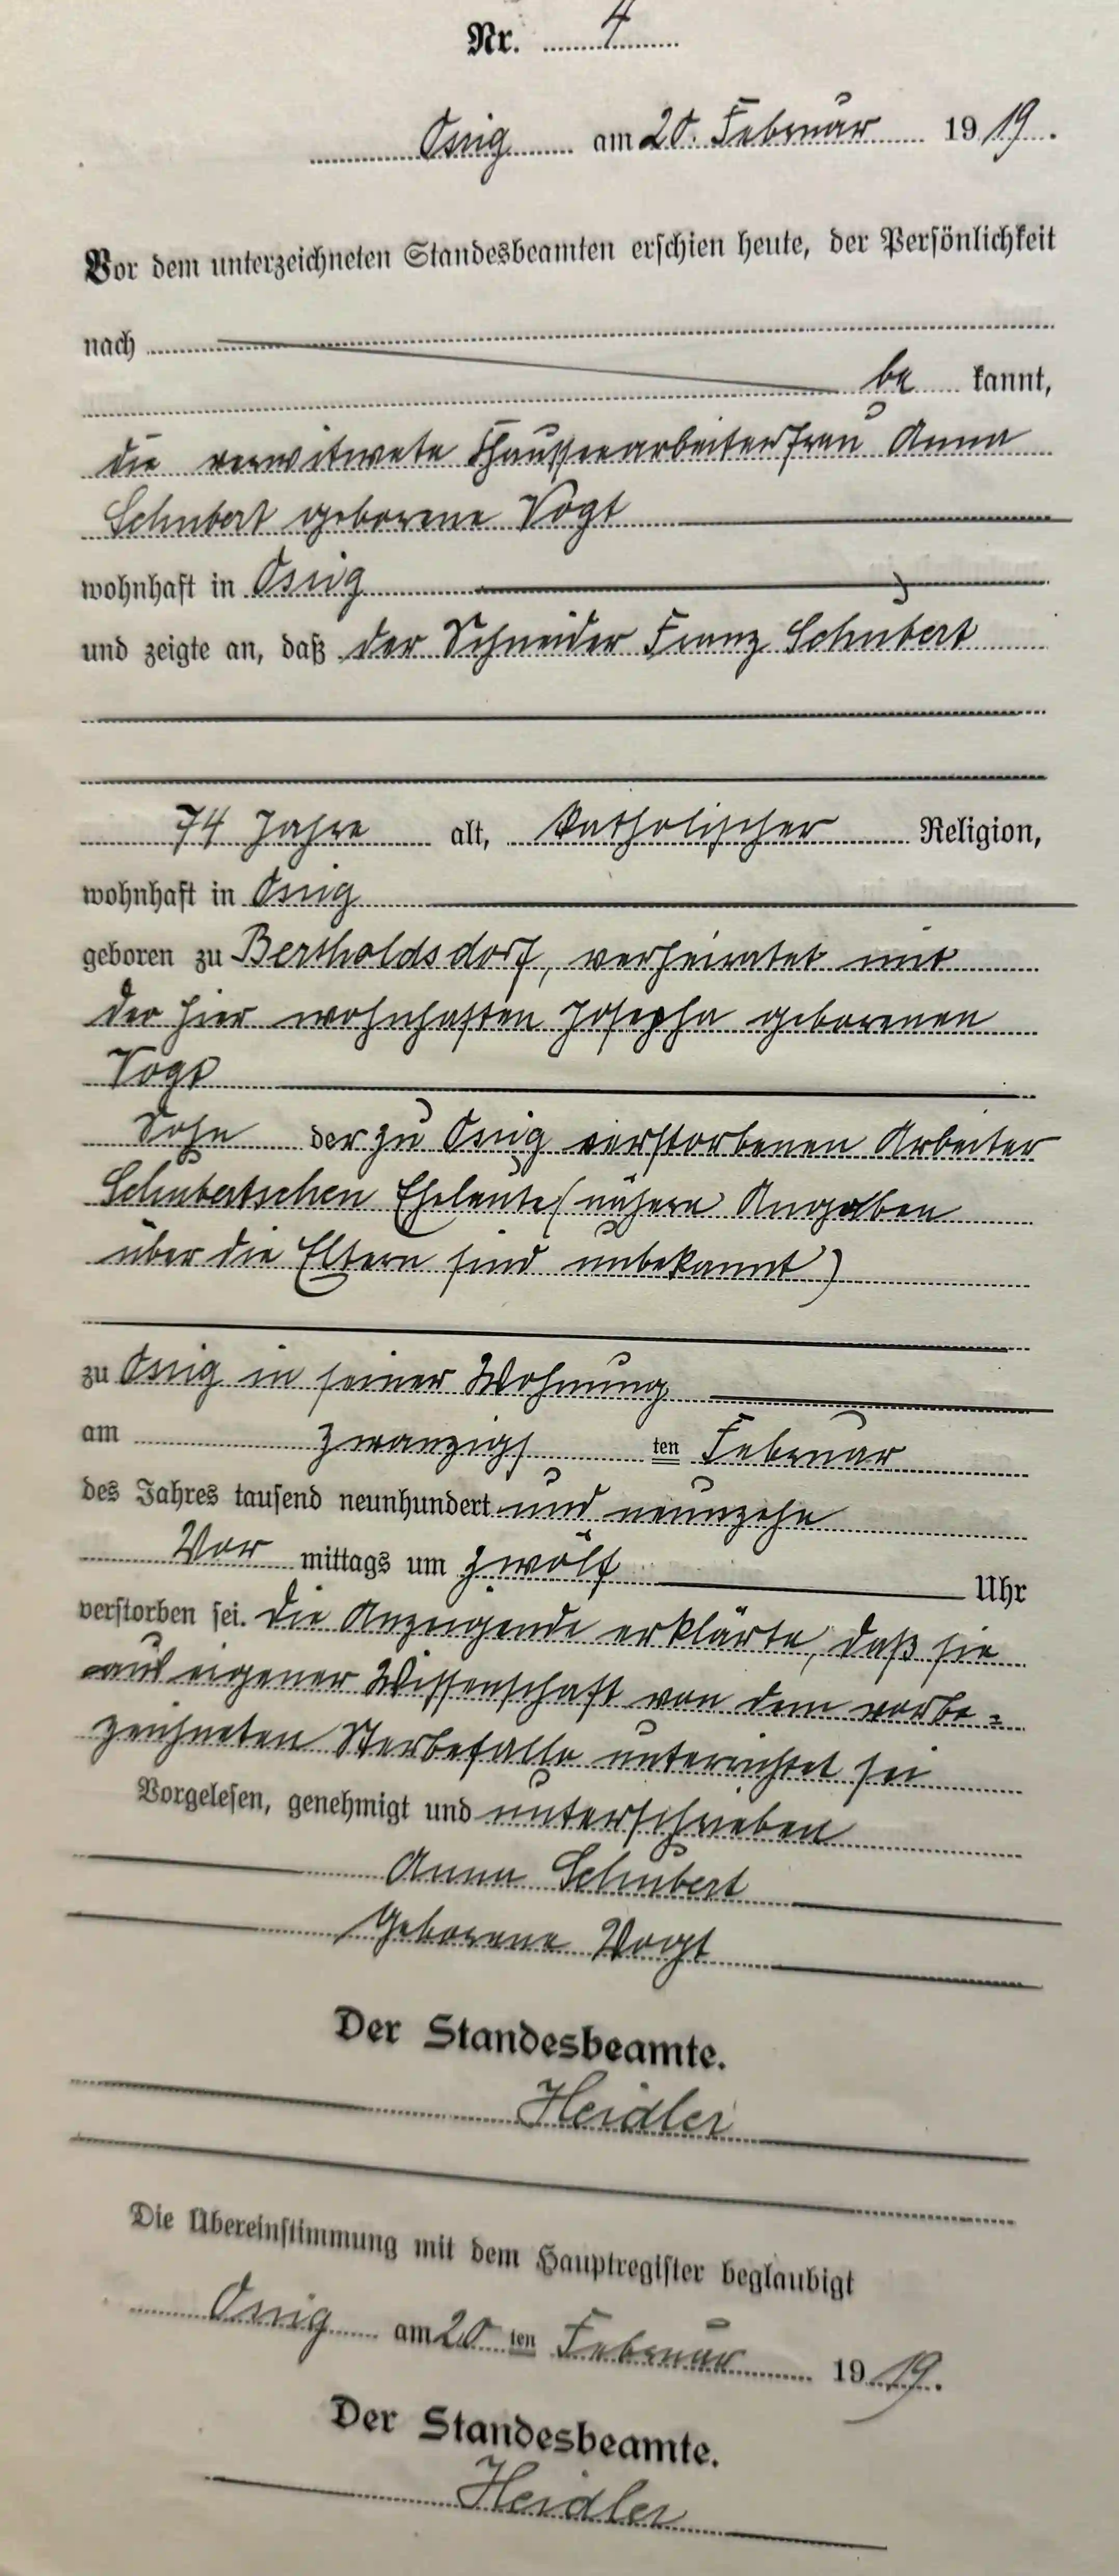 Nr. 4
Ossig am 20. Februar 1919.
Vor dem unterzeichneten Standesbeamten erschien heute, der Persönlichkeit
nach
be kannt,
die verwitwete Chausseearbeiterfrau Anna
Schubert geborene Vogt
wohnhaft in Ossig
und zeigte an, daß der Schneider Franz Schubert
74 Jahre alt, katholischer Religion,
wohnhaft in Ossig
geboren zu Bertholdsdorf, verheiratet mit
der hier wohnhaften Josepha geborenen
Vogt
Sohn der zu Ossig verstorbenen Arbeiter
Schubertschen Eheleute (nähere Angaben
über die Eltern sind unbekannt)
zu Ossig in seiner Wohnung
am zwanzigs ten Februar
des Jahres tausend neunhundert und neunzehn
Vor mittags um zwölf Uhr
verstorben sei. Die Anzeigende erklärte, daß sie
aus eigener Wissenschaft von dem vorbe-
zeichneten Sterbefalle unterrichtet sei
Vorgelesen, genehmigt und unterschrieben
Anna Schubert
Geborene Vogt
Der Standesbeamte.
Heidler
Die Übereinstimmung mit dem Hauptregister beglaubigt
Ossig am 20 ten Februar 1919.
Der Standesbeamte.
Heidler